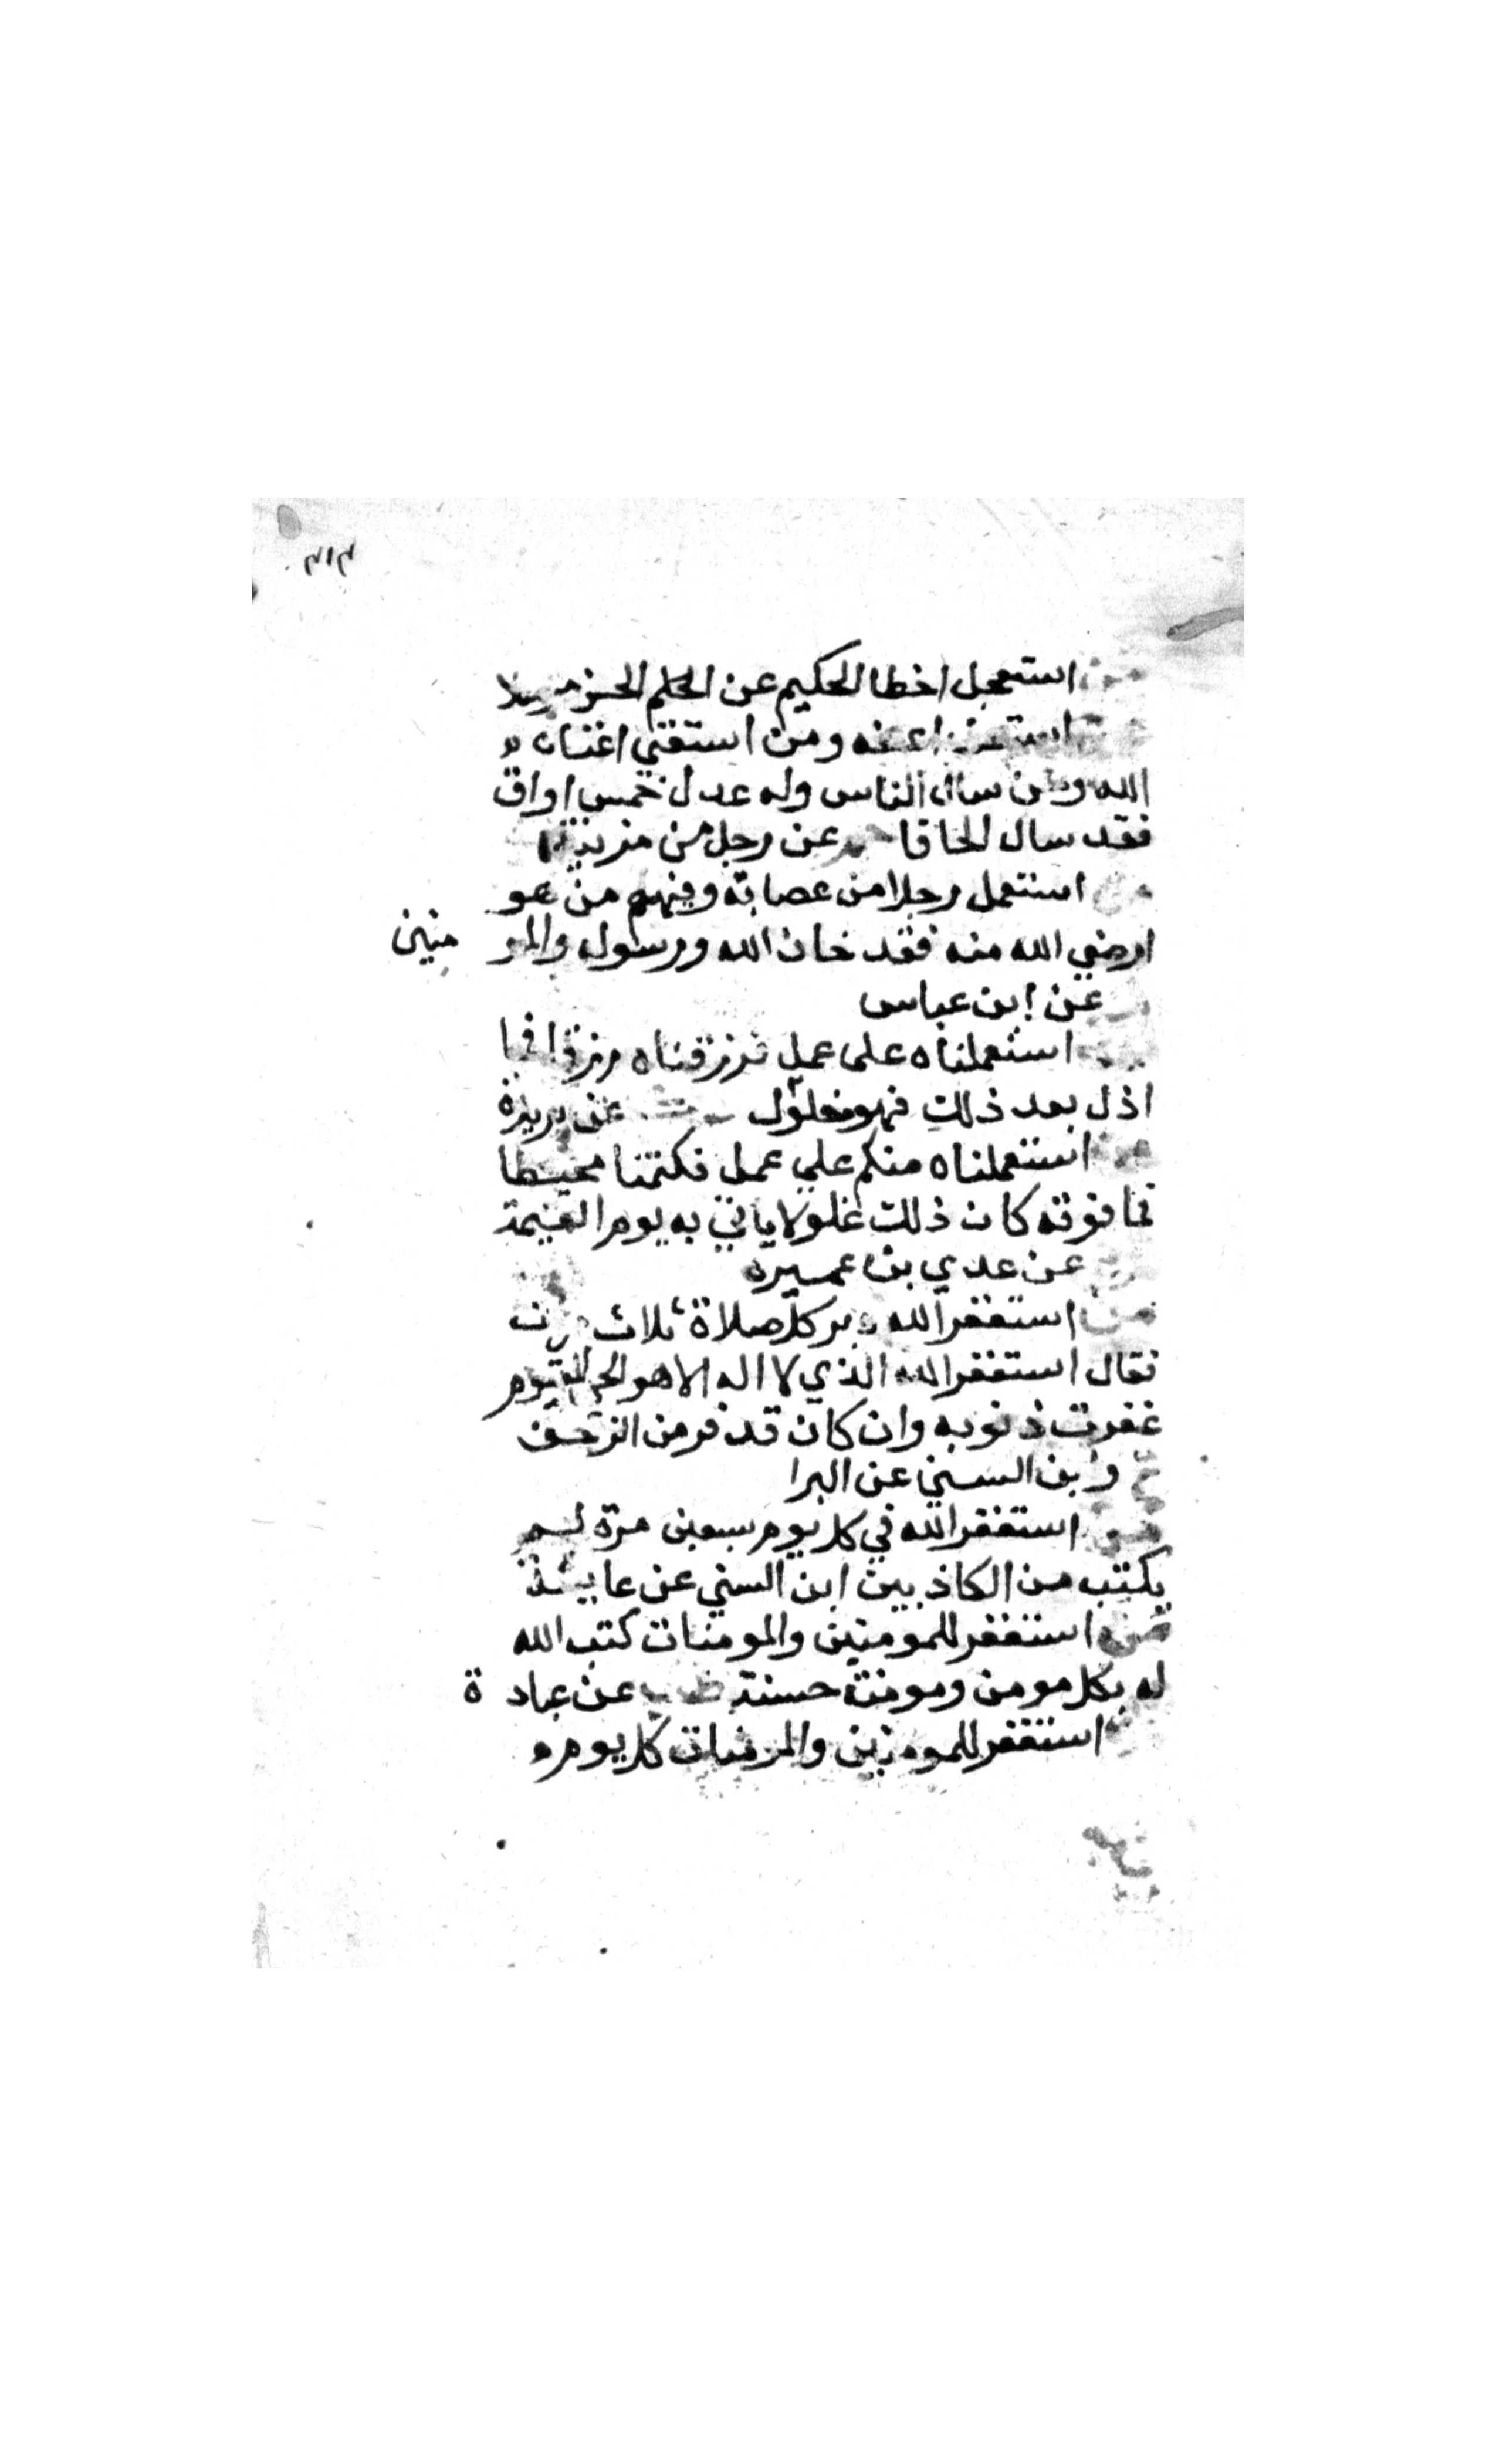 ٣١٣
من استعجل اخطا الحكيم عن الحكم الحسن مرسلا
استعف اعفه ومن استغني اغناه
الله ومن سال الناس وله عدل خمس اواق
فقد سال الحافا حم عن رجل من مزينة
من استعمل رجلا من عصابة وفيهم من هو
ارضي الله منه فقد خان الله ورسوله والمو منين
عن ابن عباس
استعملناه على عمل فرزقناه رزقا فما
اخذ بعد ذلك فهو غلول عن بريدة
من استعملناه منكم علي عمل فكتمنا مخيطا
فما فوقه كان ذلك غلولا ياتي به يوم القيمة
عن عدي بن عميرة
من استغفر الله دبر كل صلاة ثلاث مرات
فقال استغفر الله الذي لا اله الا هو الحي القيوم
غفرت ذنوبه وان كان قد فر من الزحف
ع وابن السني عن البرا
من استغفر الله في كل يوم سبعين مرة لم
يكتب من الكاذبين ابن السني عن عايشة
من استغفر للمومنين والمومنات كتب الله
له بكل مومن ومومنة حسنة طب عن عبادة
استغفر للمومنين والمومنات كل يوم